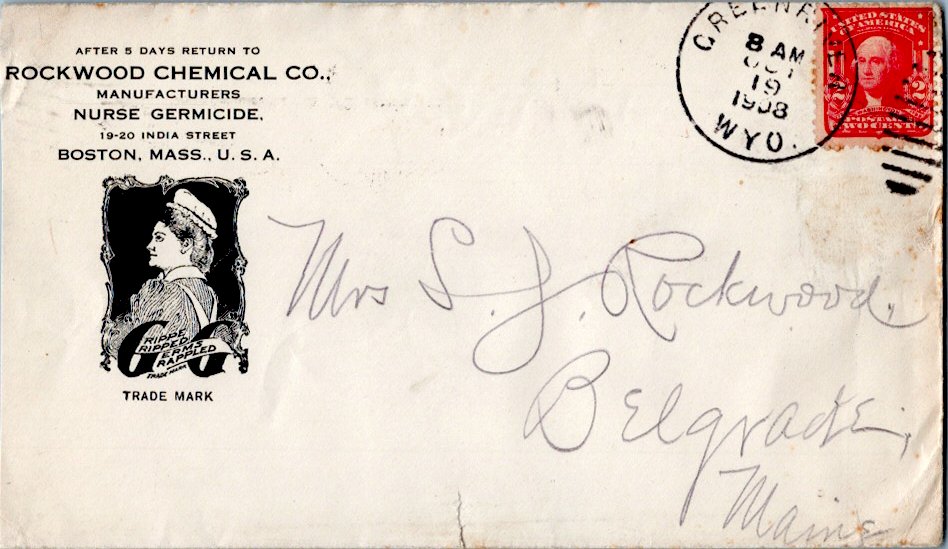 AFTER 5 DAYS RETURN TO
ROCKWOOD CHEMICAL CO.,
MANUFACTURERS
NURSE GERMICIDE,
19-20 INDIA STREET
BOSTON, MASS., U. S. A.
GRIPPE
GRIPPED
GERMS
GRAPPLED
TRADE MARK
TRADE MARK
GREEN RIVER
8 AM
OCT
19
1908
WYO.
UNITED STATES
OF AMERICA
2 2
WASHINGTON
POSTAGE
TWO CENTS
Mrs S. J. Rockwood,
Belgrade,
Maine